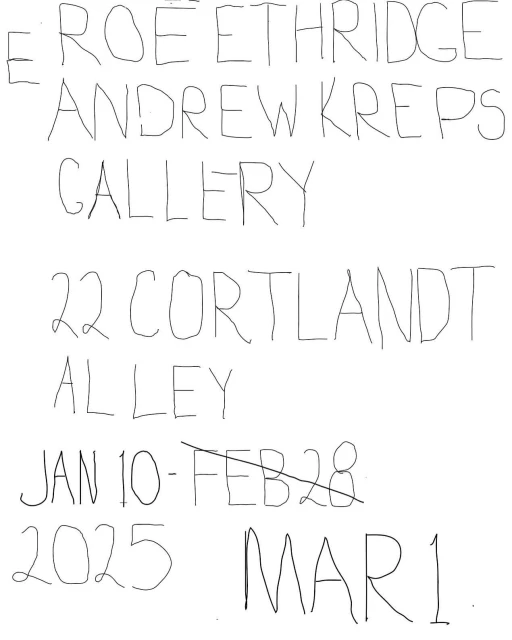 E ROE ETHRIDGE
ANDREW KREPS
GALLERY
22 CORTLANDT
ALLEY
JAN 10 - FEB 28
2025 MAR 1